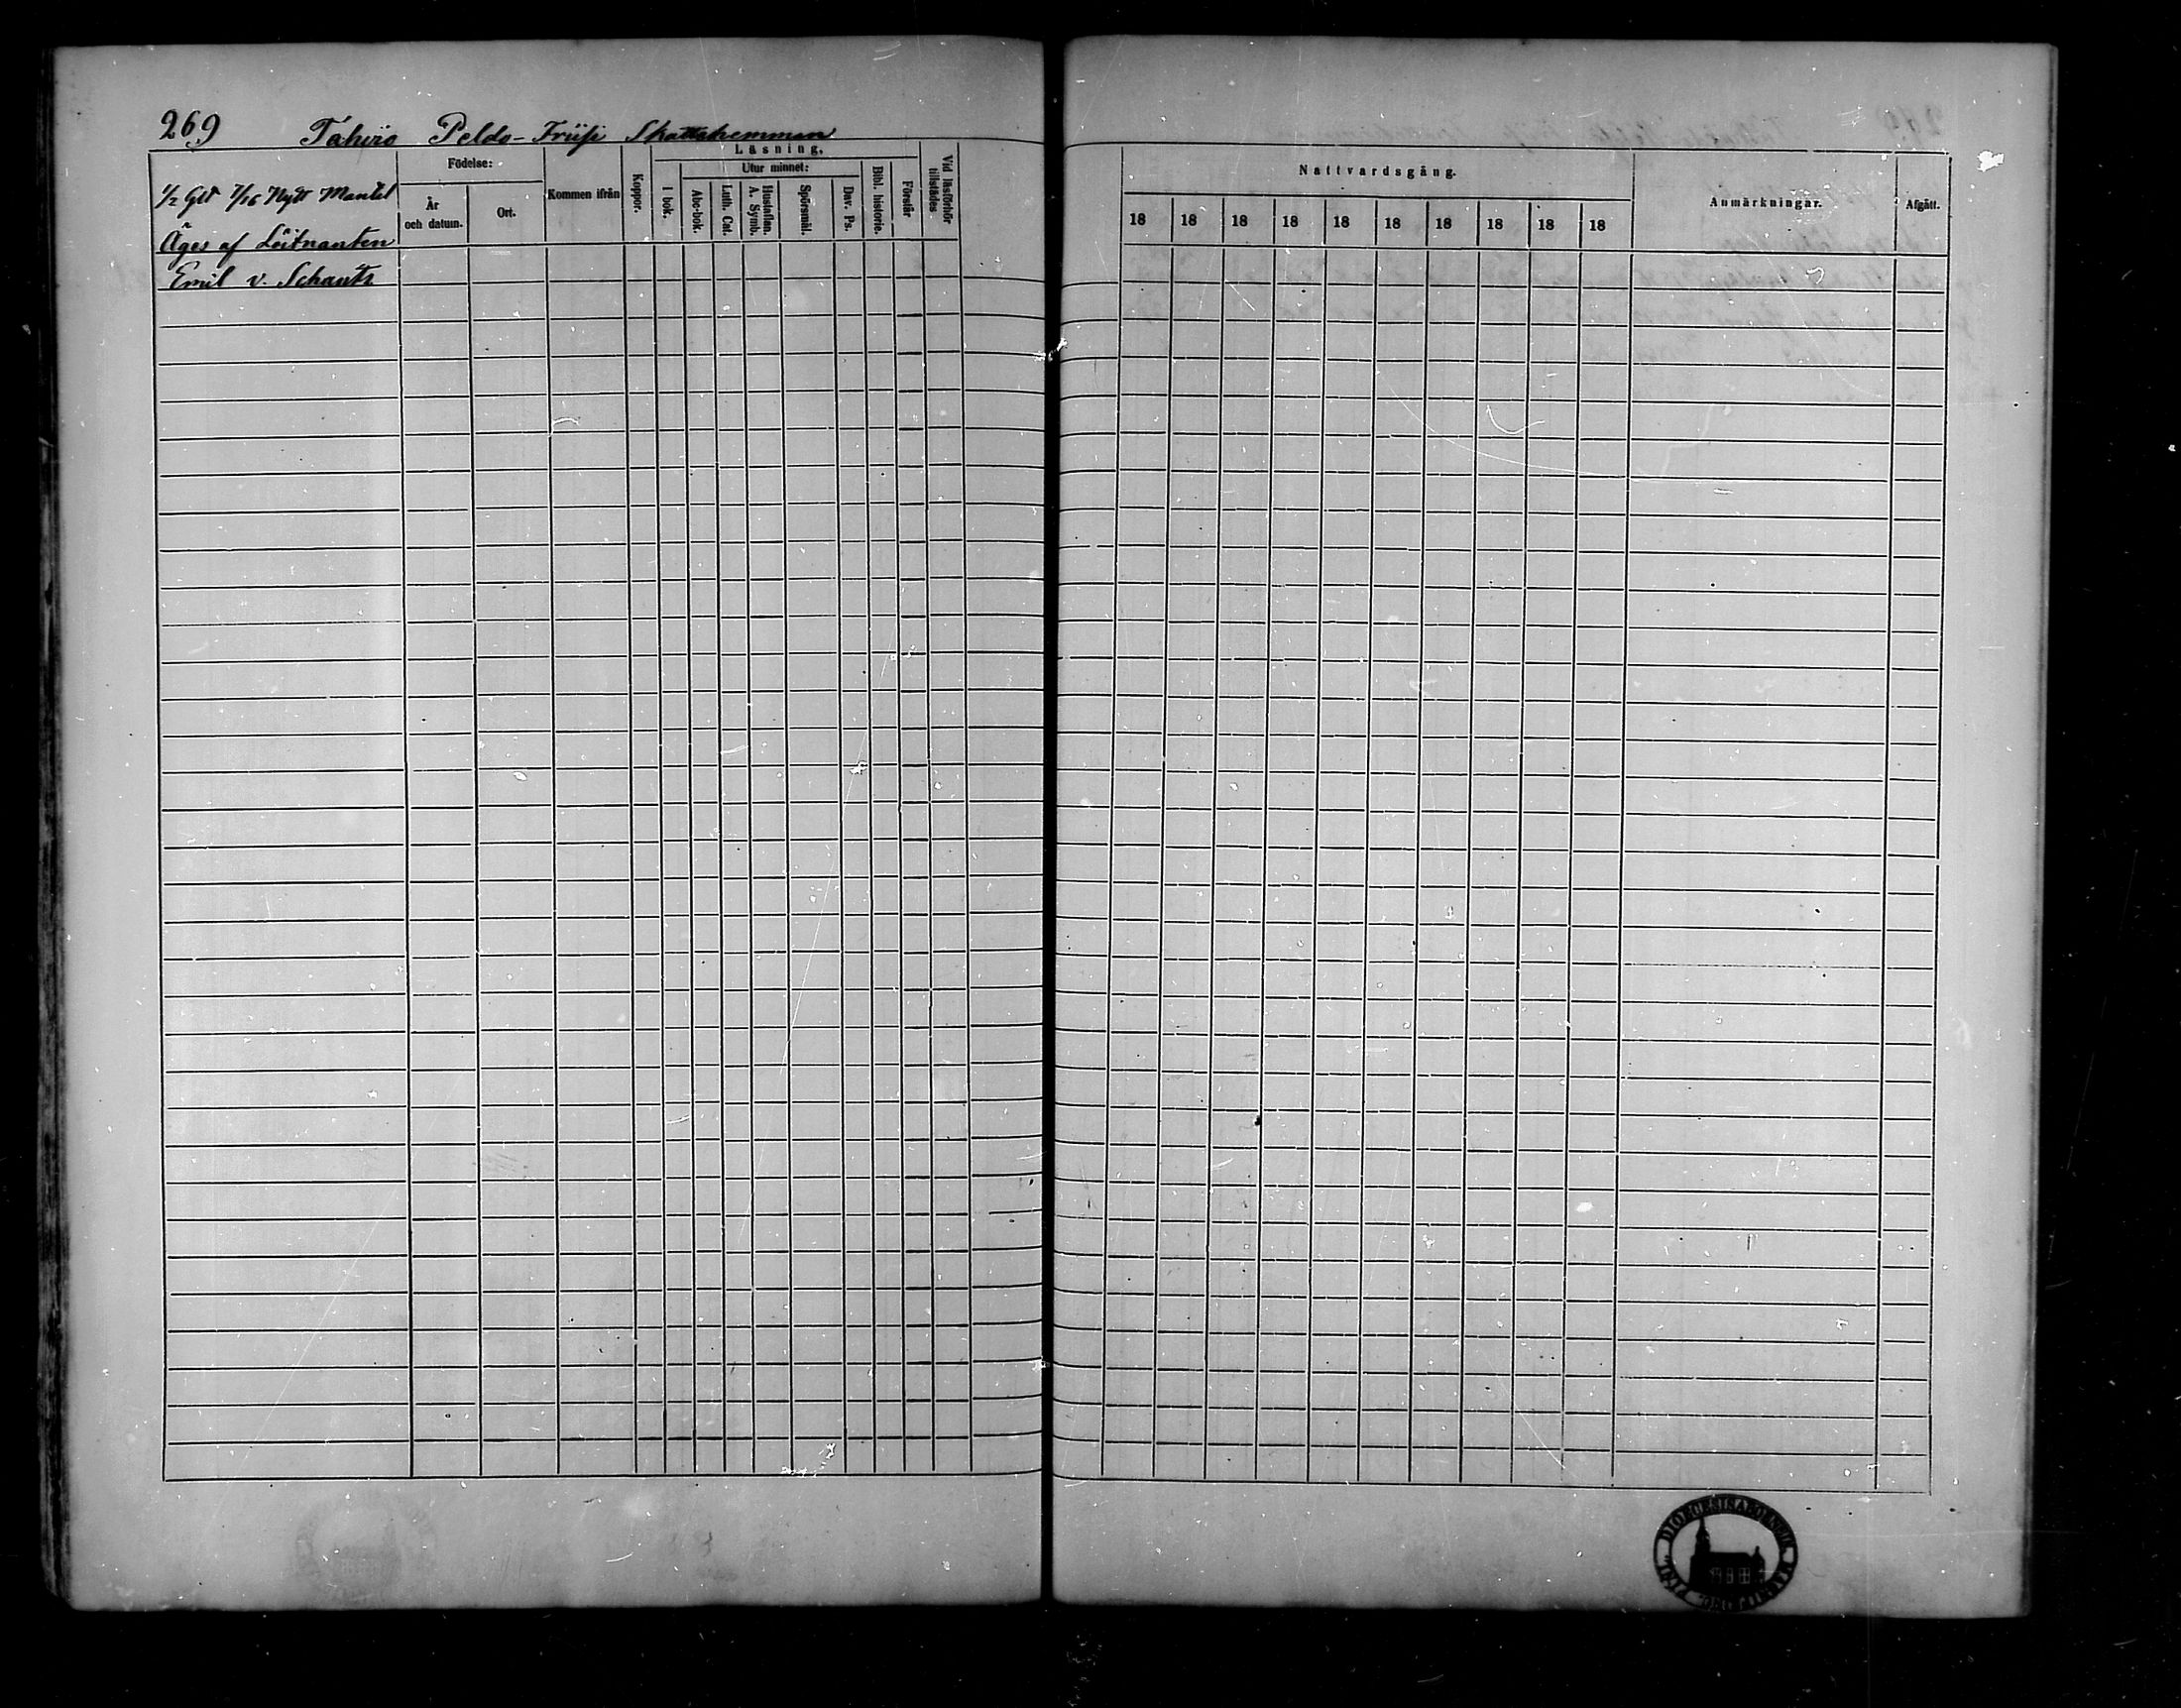 269 Tahviо Peldo-Friisi Skattehemman
Läsning.
Födelse:
Utur minnet:
½ Gtt 7/16 Nytt Mantal
År och datum.
Ort.
Kommen ifrån
Koppor.
I bok.
Abc-bok.
Luth. Cat.
Hustaflan. A. Symb.
Spörsmål.
Dav. Ps.
Bibl. historie.
Förstår
Vid läsförhör tillstädes
Äges af Löitnanten
Emil v. Schantz
Nattvardsgång.
Anmärkningar.
Afgått.
18 18 18 18 18 18 18 18 18 18